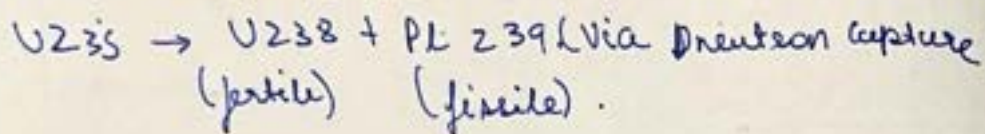 U235 → U238 + PL 239 (Via Dneutron Capture
(fertile) (fissile).